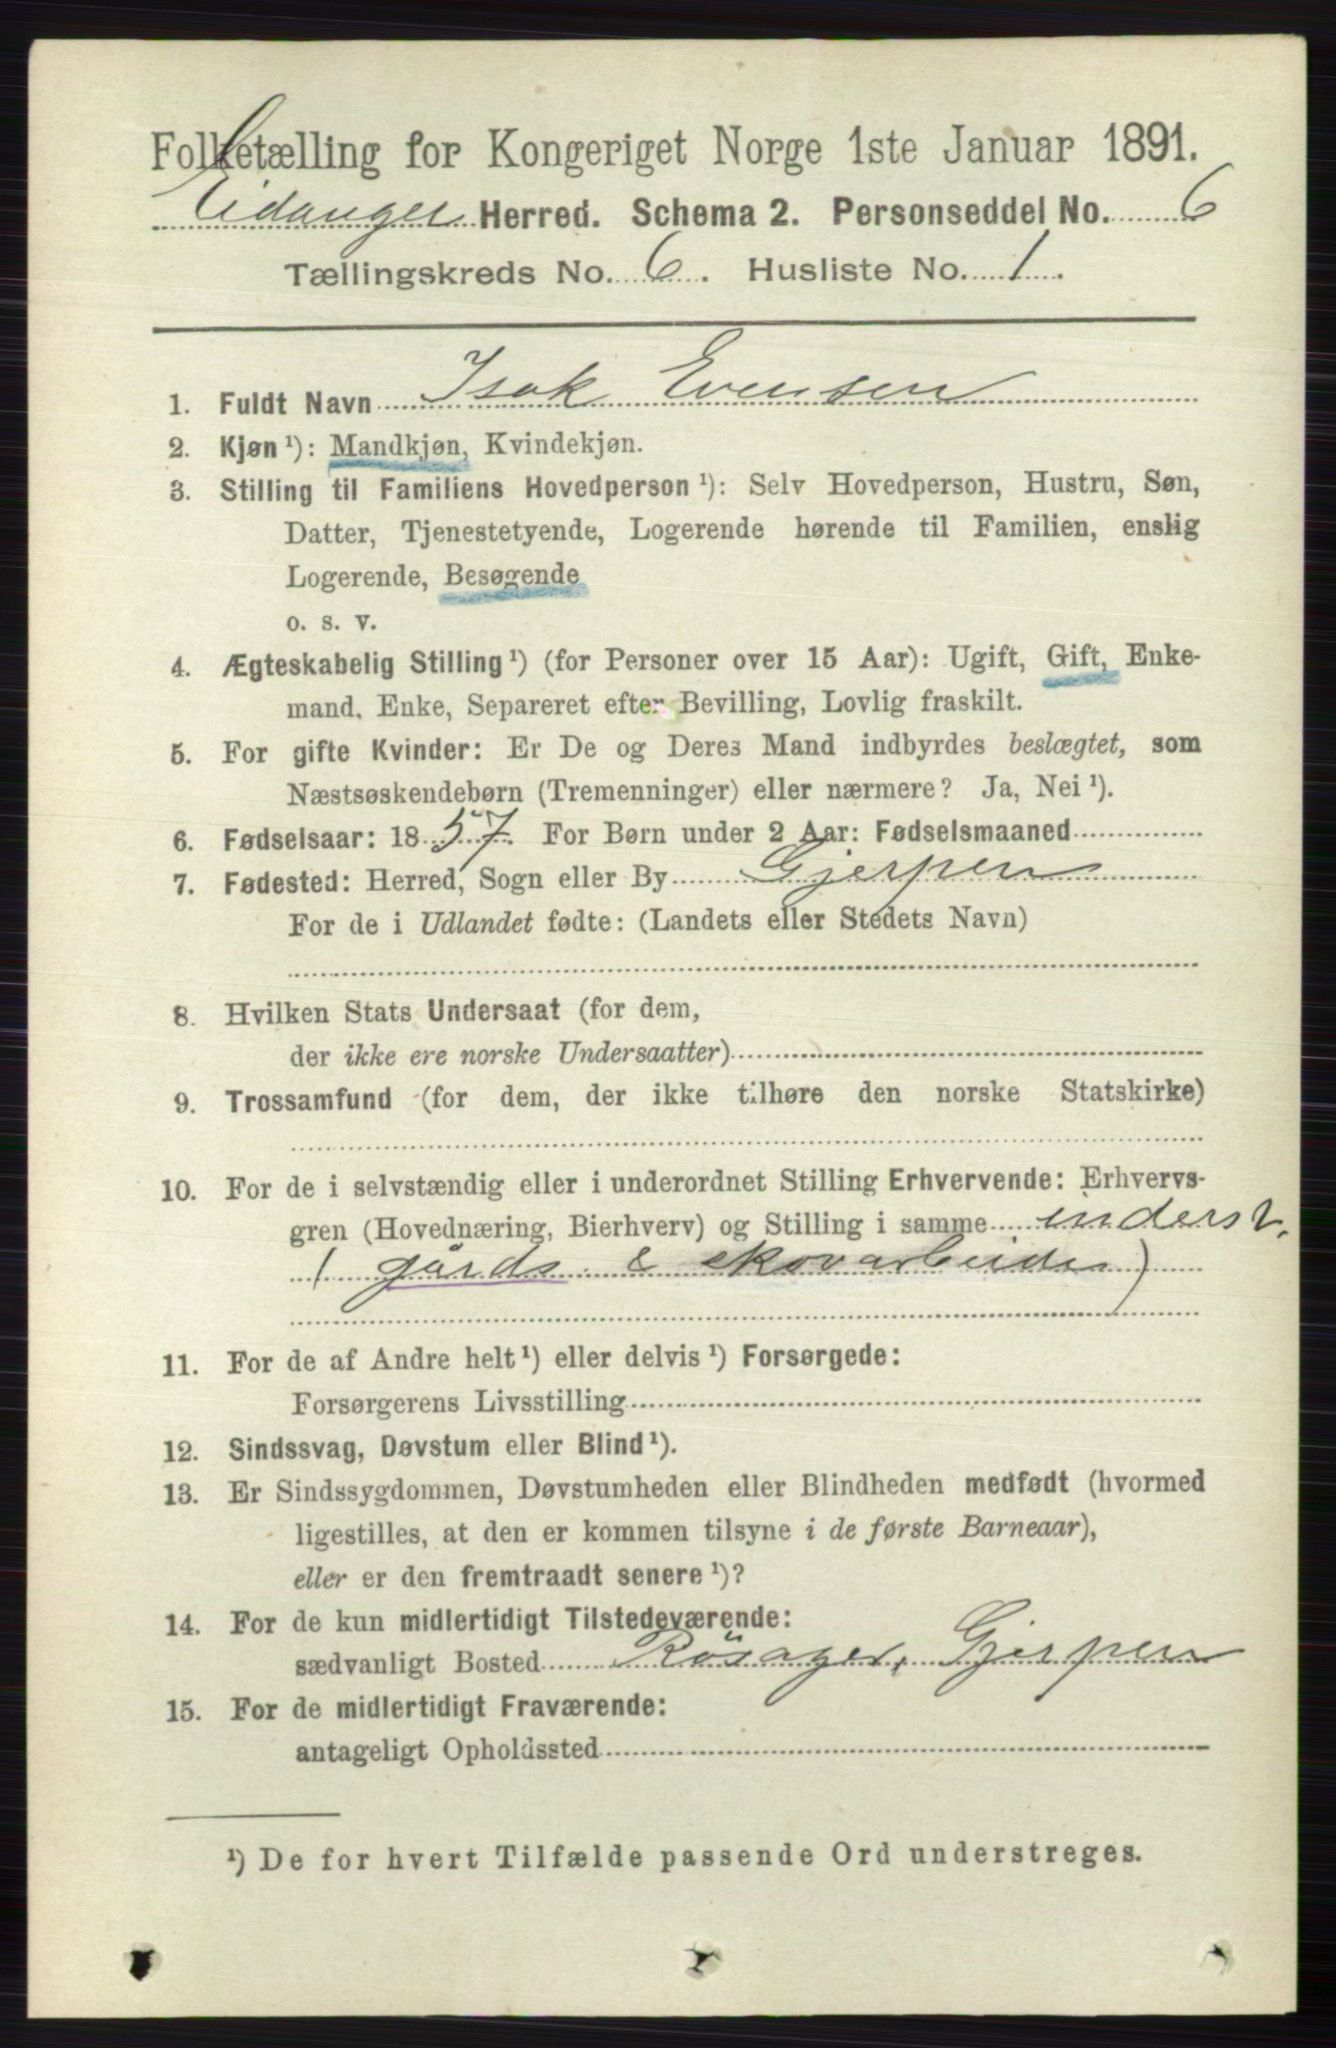 Folketælling for Kongeriget Norge 1ste Januar 1891.
Eidanger Herred. Schema 2. Personseddel No. 6
Tællingskreds No. 6. Husliste No. 1.
1. Fuldt Navn Isak Evensen
2. Kjøn ¹): Mandkjøn, Kvindekjøn.
3. Stilling til Familiens Hovedperson ¹): Selv Hovedperson, Hustru, Søn,
Datter, Tjenestetyende, Logerende hørende til Familien, enslig
Logerende, Besøgende
o. s. v.
4. Ægteskabelig Stilling ¹) (for Personer over 15 Aar): Ugift, Gift, Enke-
mand, Enke, Separeret efter Bevilling, Lovlig fraskilt.
5. For gifte Kvinder: Er De og Deres Mand indbyrdes beslægtet, som
Næstsøskendebørn (Tremenninger) eller nærmere? Ja, Nei ¹).
6. Fødselsaar: 1857. For Børn under 2 Aar: Fødselsmaaned
7. Fødested: Herred, Sogn eller By Gjerpen
For de i Udlandet fødte: (Landets eller Stedets Navn)
8. Hvilken Stats Undersaat (for dem,
der ikke ere norske Undersaatter)
9. Trossamfund (for dem, der ikke tilhøre den norske Statskirke)
10. For de i selvstændig eller i underordnet Stilling Erhvervende: Erhvervs-
gren (Hovednæring, Bierhverv) og Stilling i samme inderst.
( gårds & skovarbeider )
11. For de af Andre helt ¹) eller delvis ¹) Forsørgede:
Forsørgerens Livsstilling
12. Sindssvag, Døvstum eller Blind ¹).
13. Er Sindssygdommen, Døvstumheden eller Blindheden medfødt (hvormed
ligestilles, at den er kommen tilsyne i de første Barneaar),
eller er den fremtraadt senere ¹)?
14. For de kun midlertidigt Tilstedeværende:
sædvanligt Bosted Rösager, Gjerpen
15. For de midlertidigt Fraværende:
antageligt Opholdssted
¹) De for hvert Tilfælde passende Ord understreges.